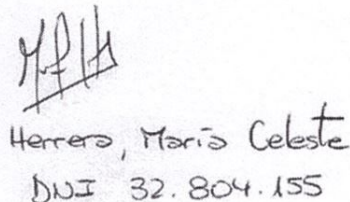 Herrera, María Celeste
DNI 32.804.155